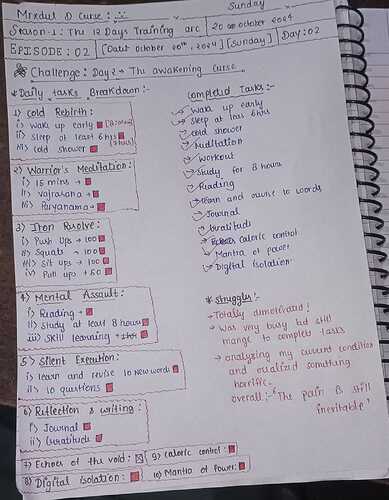 Sunday
Mrxdul D Curse :
Season-1: The 12 Days Training arc | 20 october 2024
EPISODE : 02 [Date: October 20th, 2024] [Sunday] Day: 02
Challenge : Day 2 → The awakening Curse
Daily tasks Breakdown :-
1) Cold Rebirth :
i) wake up early
ii) sleep at least 6 hrs
iii) cold shower
2) Warrior's Meditation :
i) 15 mins →
ii) Vajrasana →
iii) Pranayama →
3) Iron Resolve :
i) Push ups → 100
ii) Squats → 100
iii) Sit ups → 100
iv) Pull ups → 50
4) Mental Assault :
i) Reading →
ii) Study at least 8 hours
iii) Skill learning → 1 hr
5) Silent Execution :
i) learn and revise 10 New words
ii) 10 questions
6) Reflection & writing :
i) Journal
ii) Gratitude
7) Echoes of the void : 9) Caloric control :
8) Digital isolation : 10) Mantra of Power :
Completed Tasks :-
Wake up early
Sleep at leas 6 hrs
cold shower
Meditation
Workout
Study for 8 hours
Reading
learn and revise 10 words
Journal
Gratitude
Caloric control
Mantra of power
Digital isolation
Struggles :-
→ Totally demotivated!
→ Was very busy but still
mange to complete tasks
→ analyzing my current condition
and realized something
horrific.
overall :- "The pain is still
inevitable"